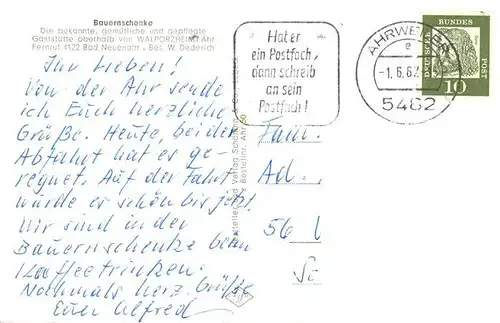 Bauernschenke
Die bekannte, gemütliche und gepflegte
Gaststätte oberhalb von WALPORZHEIM/Ahr
Fernruf 4122 Bad Neuenahr · Bes. W. Dederich
Hat er
ein Postfach,
dann schreib
an sein
Postfach!
AHRWEILER
e
-1.6.62
5482
DEUTSCHE
BUNDES
POST
10
Ihr Lieben!
Von der Ahr sende
ich Euch herzliche
Grüße. Heute, bei der
Abfahrt hat es ge-
regnet. Auf der Fahrt
wurde es schön bis jetzt.
Wir sind in der
Bauernschenke beim
Kaffeetrinken.
Nochmals herz. Grüße
Euer Alfred
Fam.
Ad.
56
Sc
Bestellnr. Ahr 50